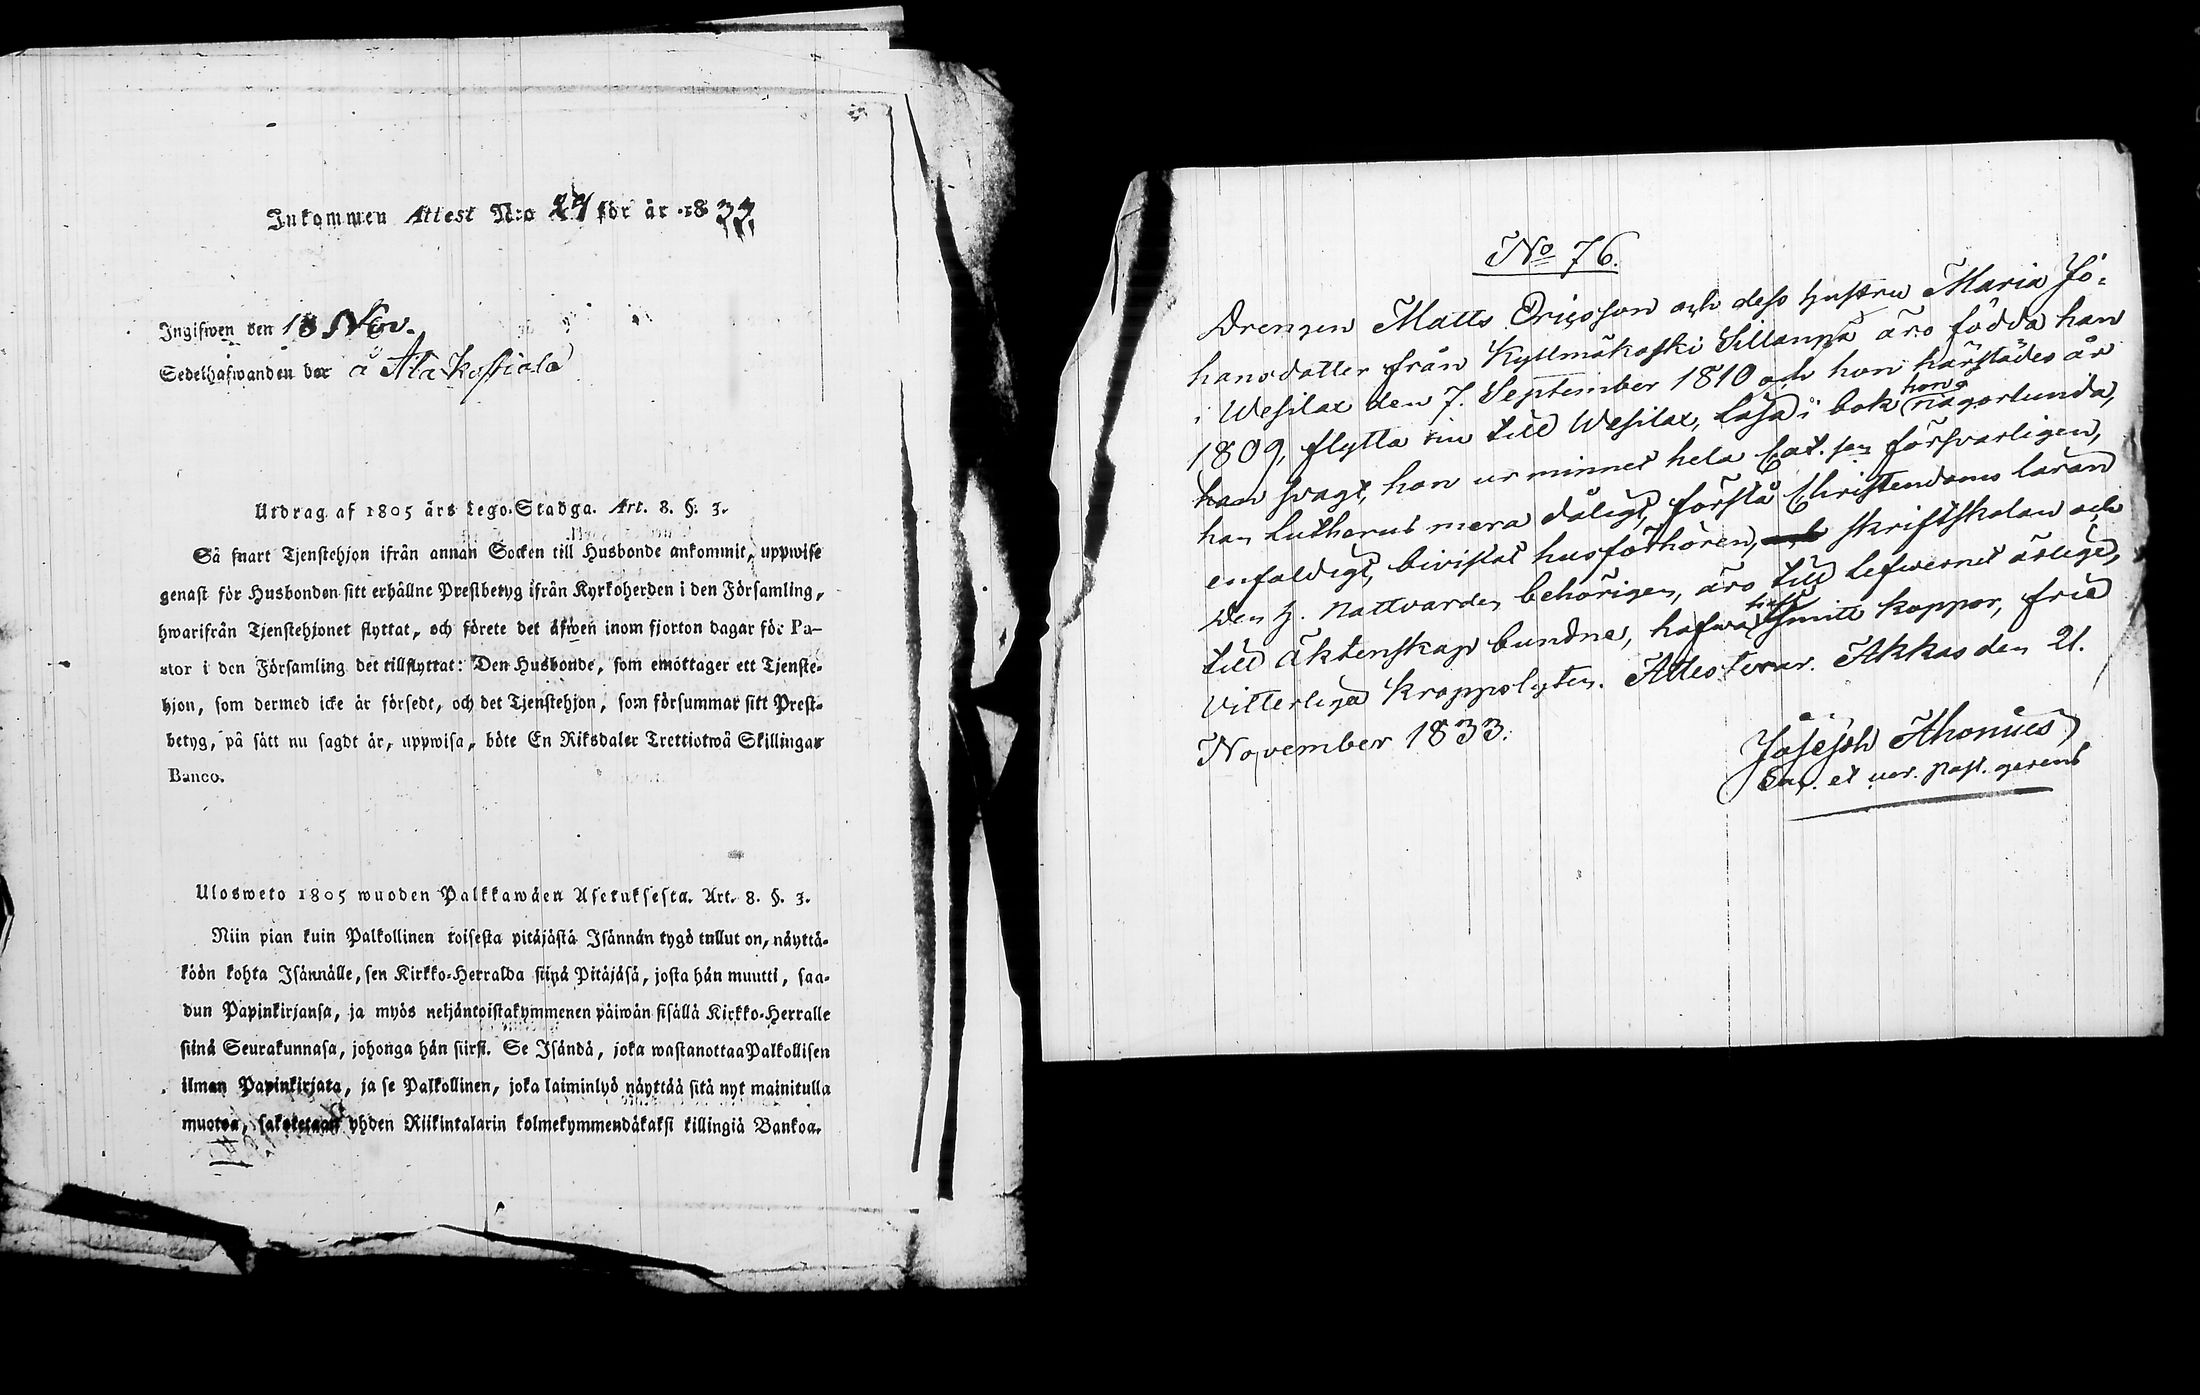 Inkommen Attest N:o 27 för år 1833.
Ingifwen den 18 Nov.
Sedelhafwanden bor å Ala Koskiala
Utdrag af 1805 års Lego-Stadga. Art. 8. §. 3.
Så snart Tjenstehjon ifrån annan Socken till Husbonde ankommit, uppwise
genast för Husbonden sitt erhållne Prestbetyg ifrån Kyrkoherden i den Församling,
hwarifrån Tjenstehjonet flyttat, och förete det äfwen inom fjorton dagar för Pa-
stor i den Församling det tillflyttat: Den Husbonde, som emottager ett Tjenste-
hjon, som dermed icke är försedt, och det Tjenstehjon, som försummar sitt Prest-
betyg, på sätt nu sagdt är, uppwisa, böte En Riksdaler Trettiotwå Skillingar
Banco.
Ulosweto 1805 wuoden Palkkawäen Asetuksesta. Art. 8. §. 3.
Niin pian kuin Palkollinen toisesta pitäjästä Isännän tygö tullut on, näyttä-
köön kohta Isännälle, sen Kirkko-Herralda siinä Pitäjäsä, josta hän muutti, saa-
dun Papinkirjansa, ja myös neljäntoistakymmenen päiwän sisällä Kirkko-Herralle
siinä Seurakunnasa, johonga hän siirsi. Se Isändä, joka wastanottaa Palkollisen
ilman Papinkirjata, ja se Palkollinen, joka laiminlyö näyttää sitä nyt mainitulla
muotoa, sakotetaan yhden Riikintalarin kolmekymmendäkaksi killingiä Bankoa.
No 76.
Drengen Matts Ericsson och dess hustru Maria Jo-
hansdotter från Kyllmäkoski Sillanpä äro födda han
i Wesilax den 7. September 1810 och hon härstädes år
1809, flytta nu till Wesilax, läsa i bok hon någorlunda,
han svagt, hon ur minnet hela Cat.sen försvarligen,
han Lutherus mera dåligt, förstå Christendoms läran
enfaldigt, bivistat husförhören, skriftskolan och
den H. Nattvarden behörigen, äro till lefwernet ärliga,
till äktenskap bundne, hafwa haft smitt koppor, frie
vitterliga kroppslyten. Attesterar. Akkas den 21.
November 1833.
Joseph Ahonius
Sac. et ver. past. gerens